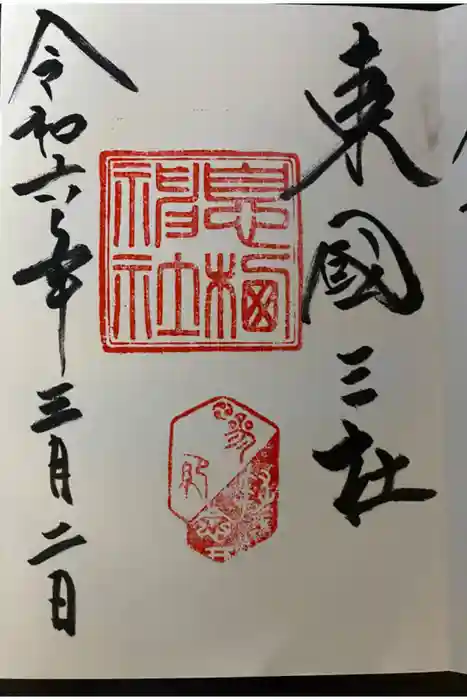 東國三社
息栖
神社
令和六年三月二日